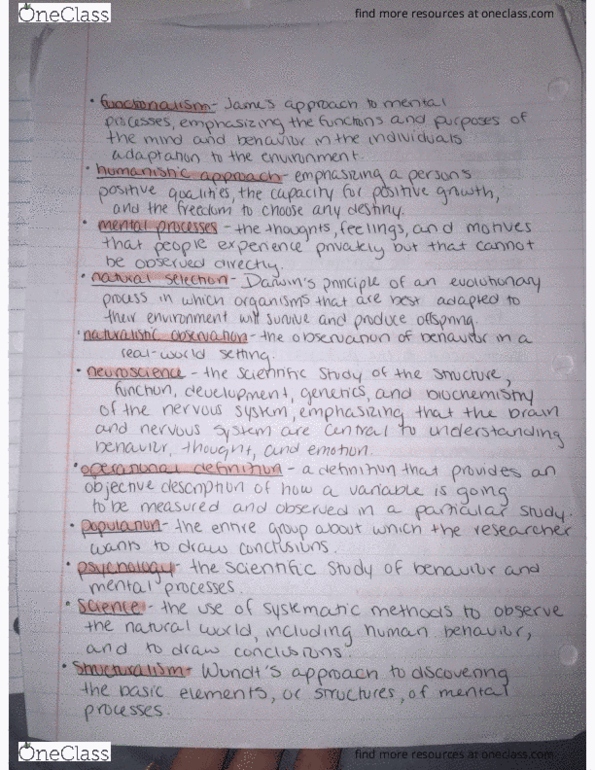 OneClass
find more resources at oneclass.com
• functionalism - James approach to mental
processes, emphasizing the functions and purposes of
the mind and behavior in the individuals
adaptation to the environment.
• humanistic approach - emphasizing a person's
positive qualities, the capacity for positive growth,
and the freedom to choose any destiny.
• mental processes - the thoughts, feelings, and motives
that people experience privately but that cannot
be observed directly.
• natural selection - Darwin's principle of an evolutionary
process in which organisms that are best adapted to
their environment will survive and produce offspring.
• naturalistic observation - the observation of behavior in a
real-world setting.
• neuroscience - the scientific study of the structure,
function, development, genetics, and biochemistry
of the nervous system, emphasizing that the brain
and nervous system are central to understanding
behavior, thought, and emotion.
• operational definition - a definition that provides an
objective description of how a variable is going
to be measured and observed in a particular study.
• population - the entire group about which the researcher
wants to draw conclusions.
• psychology - the scientific study of behavior and
mental processes.
• science - the use of systematic methods to observe
the natural world, including human behavior,
and to draw conclusions.
• structuralism - Wundt's approach to discovering
the basic elements, or structures, of mental
processes.
OneClass
find more resources at oneclass.com